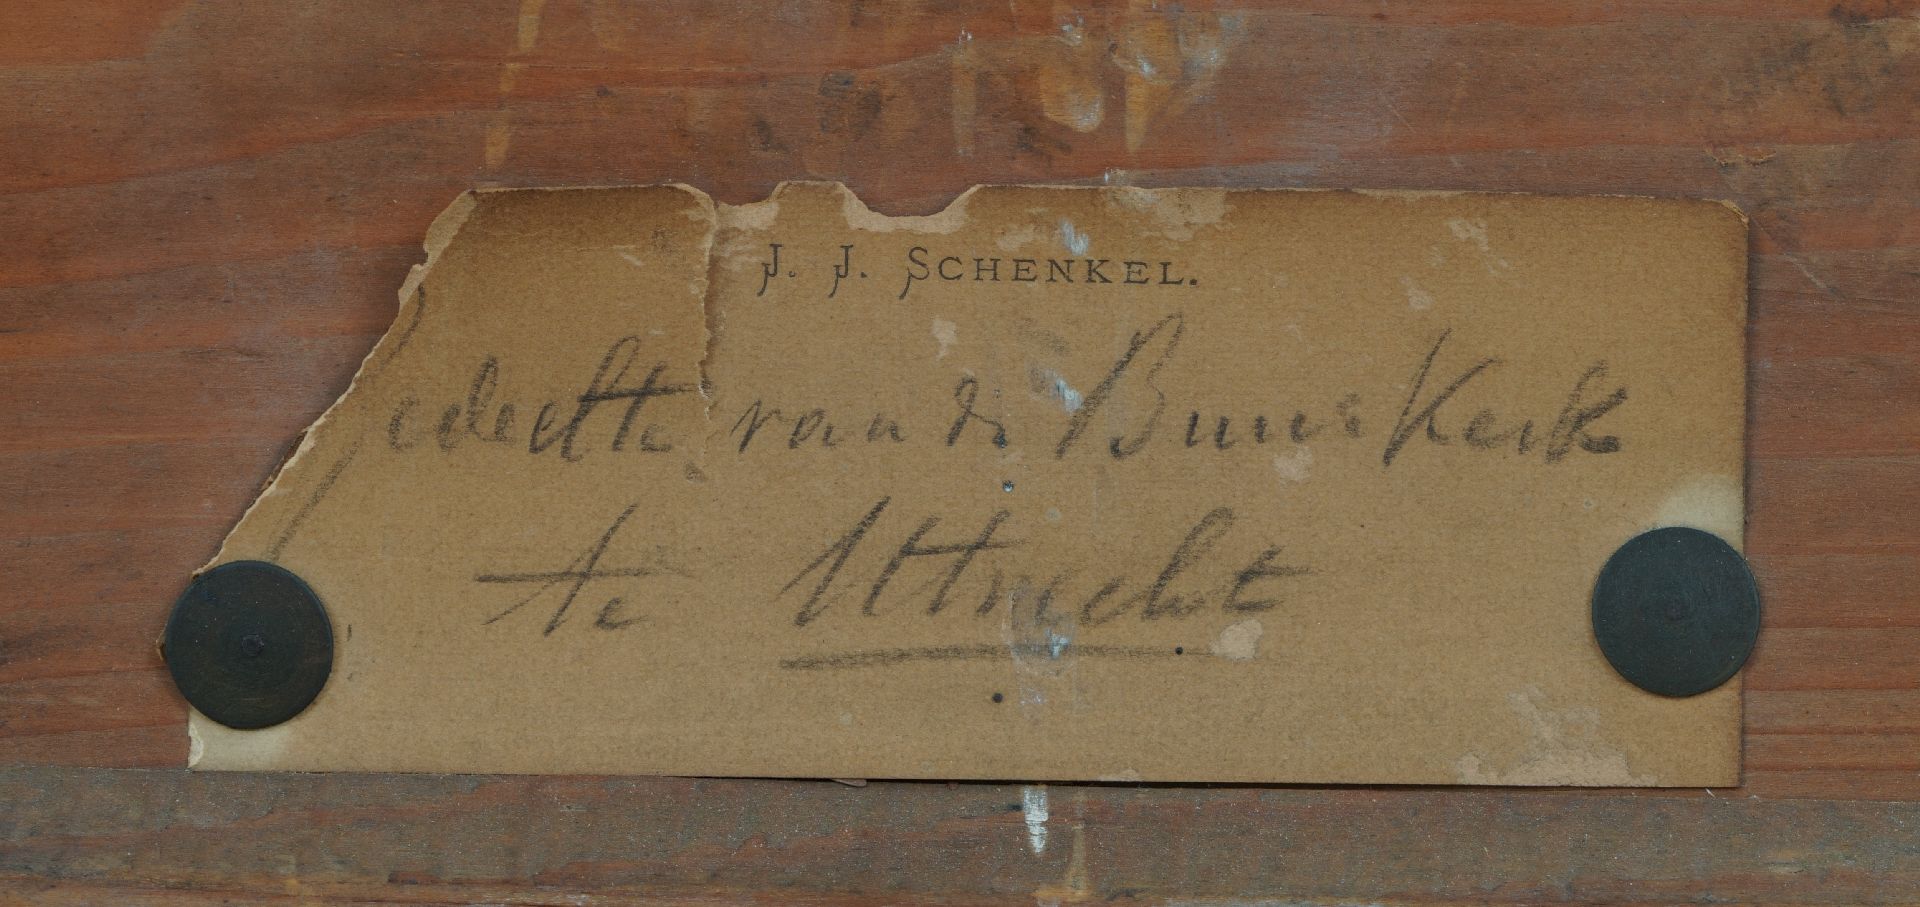 J. J. SCHENKEL.
Gedeelte van de Buurkerk
te Utrecht